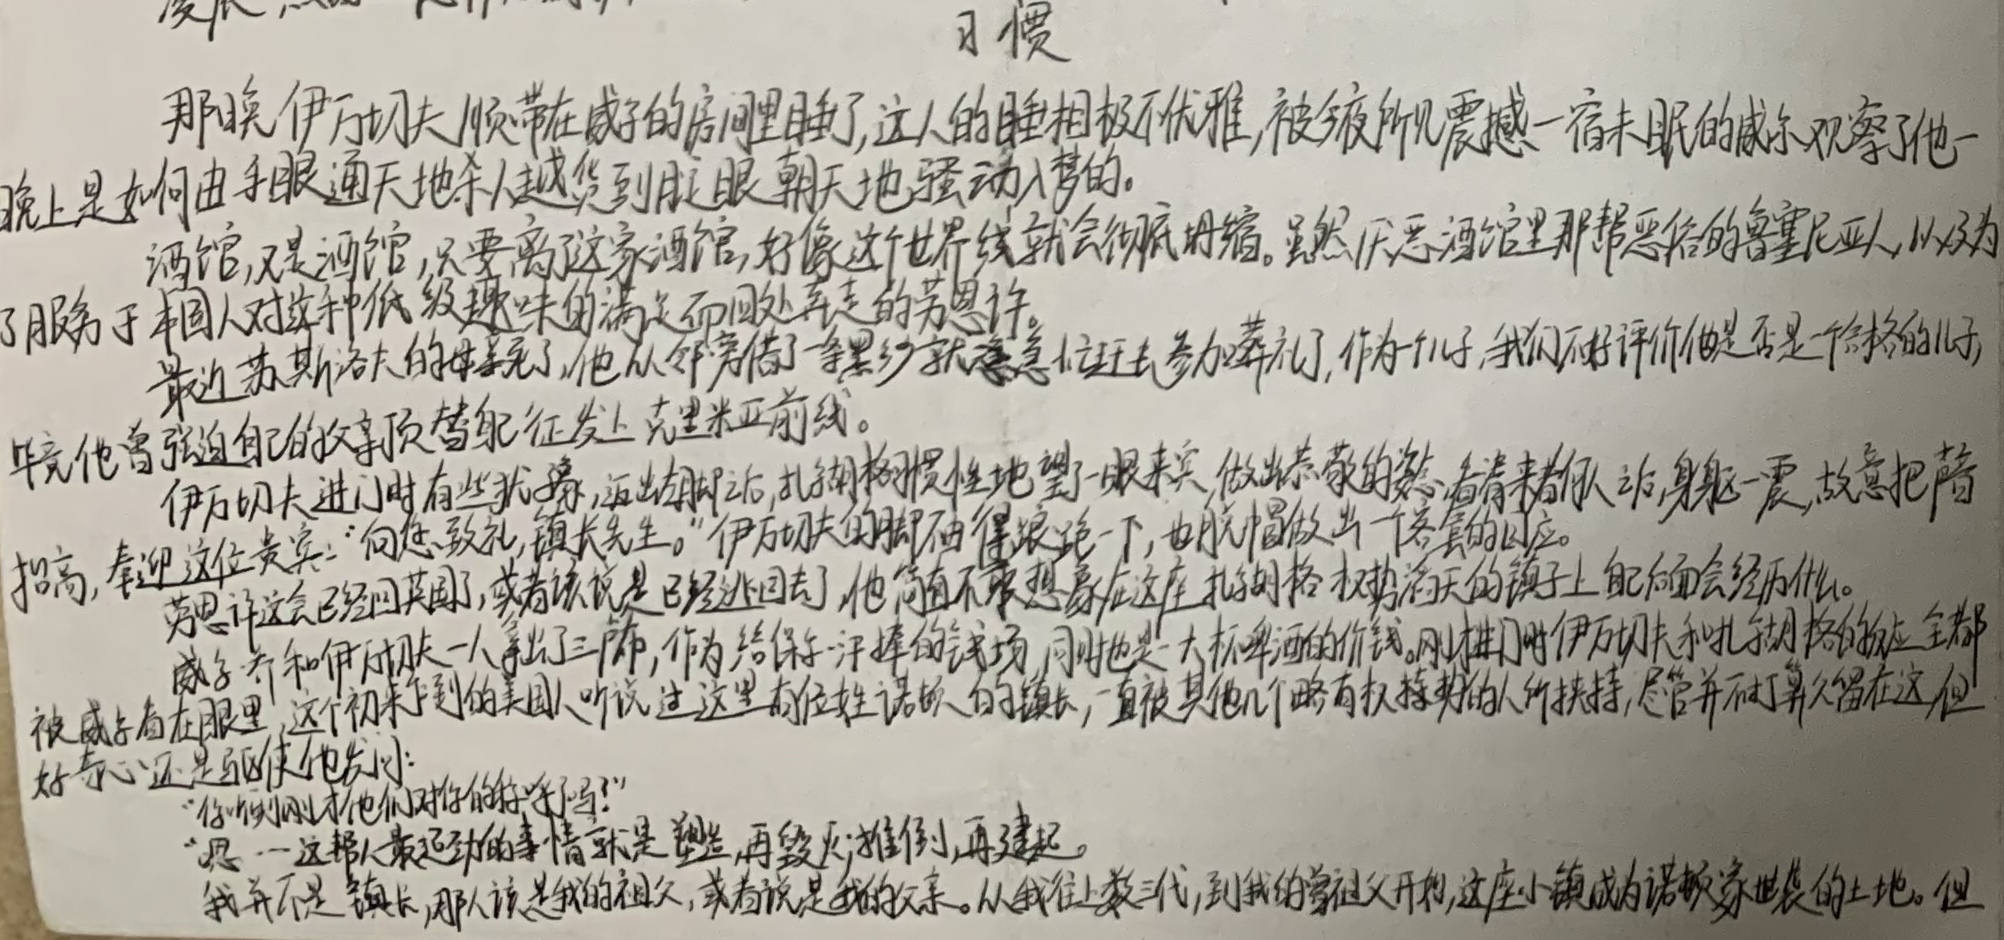 习惯
那晚伊万切夫顺带在威尔的房间里睡了,这人的睡相极不优雅,被今夜所见震撼一宿未眠的威尔观察了他一
晚上是如何由手眼通天地杀人越货到腚眼朝天地骚动入梦的。
酒馆,又是酒馆,只要离了这家酒馆,好像这个世界线就会彻底坍缩。虽然厌恶酒馆里那帮恶俗的鲁塞尼亚人,以及为
了服务于本国人对这种低级趣味的满足而四处奔走的劳恩许。
最近苏斯洛夫的母亲死了,他从邻旁借了一条黑纱就急急忙忙去参加葬礼了,作为一个儿子,我们不好评价他是否是一个合格的儿子,
毕竟他曾强迫自己的父亲顶替自己征发上克里米亚前线。
伊万切夫进门时有些犹豫,迈出左脚之后,扎胡格习惯性地望了一眼来宾,做出恭敬的姿态,看清来者何人之后,身躯一震,故意把声音
抬高,奉迎这位贵宾:“向您致礼,镇长先生。”伊万切夫的脚不由得踉跄一下,也脱帽做出一个客套的回应。
劳恩许这会已经回英国了,或者该说是已经逃回去了,他简直不敢想象在这座扎胡格权势滔天的镇子上自己后面会经历什么。
威尔 和伊万切夫一人拿出了三 ,作为给保尔 捧的钱场,同时也是一大杯啤酒的价钱。刚进门时伊万切夫和扎胡格的反应全都
被威尔看在眼里,这个初来乍到的美国人听说过这里有位姓诺顿 的镇长,一直被其他几个略有权势的人所挟持,尽管并不打算久留在这,但
好奇心还是驱使他发问:
“你听到刚才他们对你的称呼了吗?”
“嗯……这帮人最起劲的事情就是塑造,再毁灭;推倒,再建起。
我并不是镇长,那人该是我的祖父,或者说是我的父亲。从我往上数三代,到我的曾祖父开始,这座小镇成为诺顿家世袭的土地。但